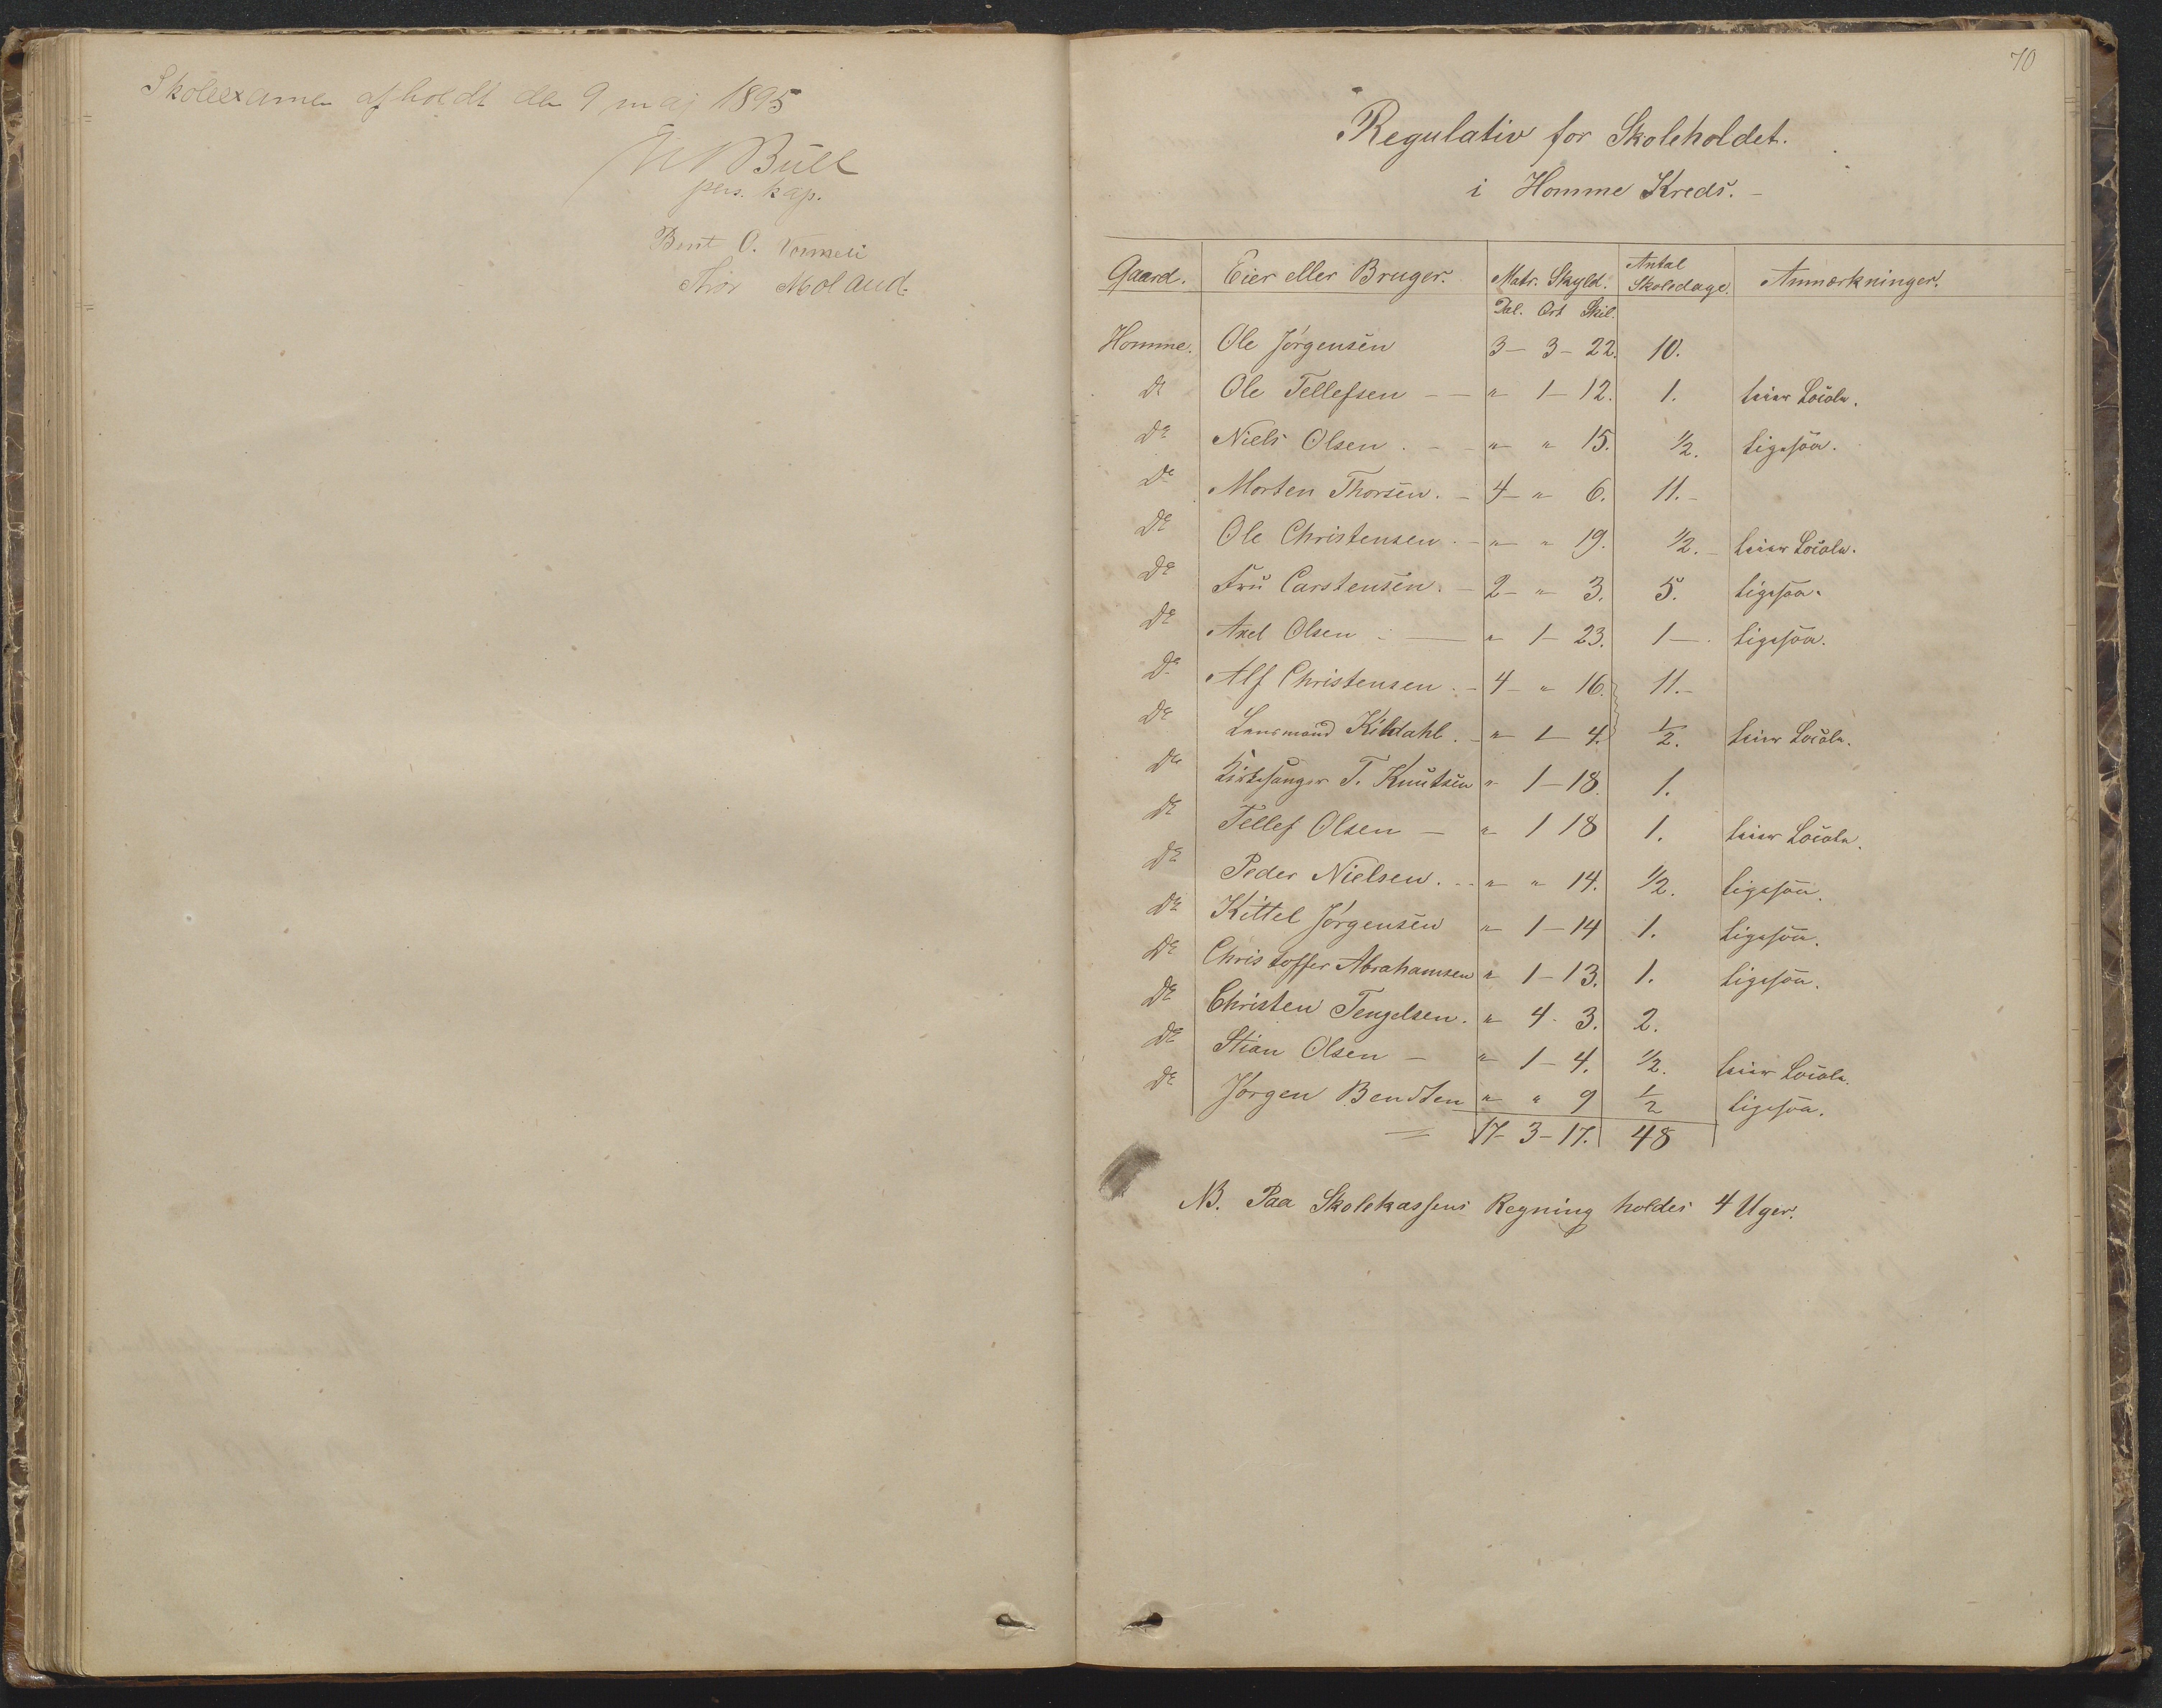 Skoleexamen afholdt den 9 maj 1895
Bull
pers. kap.
Bent O.
Thor Moland
70
Regulativ for Skoleholdet.
i Homme Kreds. –
Gaard. Eier eller Bruger. Matr. Skyld. Antal Skoledage. Anmærkninger.
Dal. Ort Skil.
Homme. Ole Jörgensen 3 – 3 – 22. 10.
Do Ole Tellefsen – – " 1 – 12. 1. leier Locale.
Do Niels Olsen. – " " 15. 1/2. ligesaa.
Do Morten Thorsen. – 4 – " 6. 11. –
Do Ole Christensen. – " " 19. 1/2. – leier Locale.
Do Fru Carstensen. – 2 – " 3. 5. ligesaa.
Do Axel Olsen – " 1 – 23. 1 – . ligesaa.
Do Alf Christensen. – 4 – " 16. 11. –
Do Lensmand Kildahl. – " 1 – 4. 1/2. leier Locale.
Do Kirkesanger T. Knutsen " 1 – 18. 1.
Do Tellef Olsen – " 1 18 1. leier Locale.
Do Peder Nielsen. – " " 14. 1/2. ligesaa.
Do Kittel Jörgensen " 1 – 14 1. ligesaa.
Do Christoffer Abrahamsen " 1 – 13. 1. ligesaa.
Do Christen Tengelsen. " 4 – 3. 2.
Do Stian Olsen – " 1 – 4. 1/2. leier Locale.
Do Jörgen Bendtsen " " 9 1/2 ligesaa.
= 17 – 3 – 17. 48
NB. Paa Skolekassens Regning holdes 4 Uger.